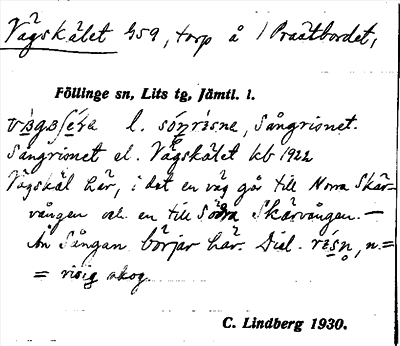 Vägskälet 459, torp å / Praätbordet,
Föllinge sn, Lits tg, Jämtl. l.
l. Sångrisnet.
Sångrisnet el. Vägskälet kb 1922
Vägskäl här, i det en väg går till Norra Skär-
vången och en till Södra Skärvången. —
Ån Sångan börjar här. Dial. n. =
= risig skog.
C. Lindberg 1930.